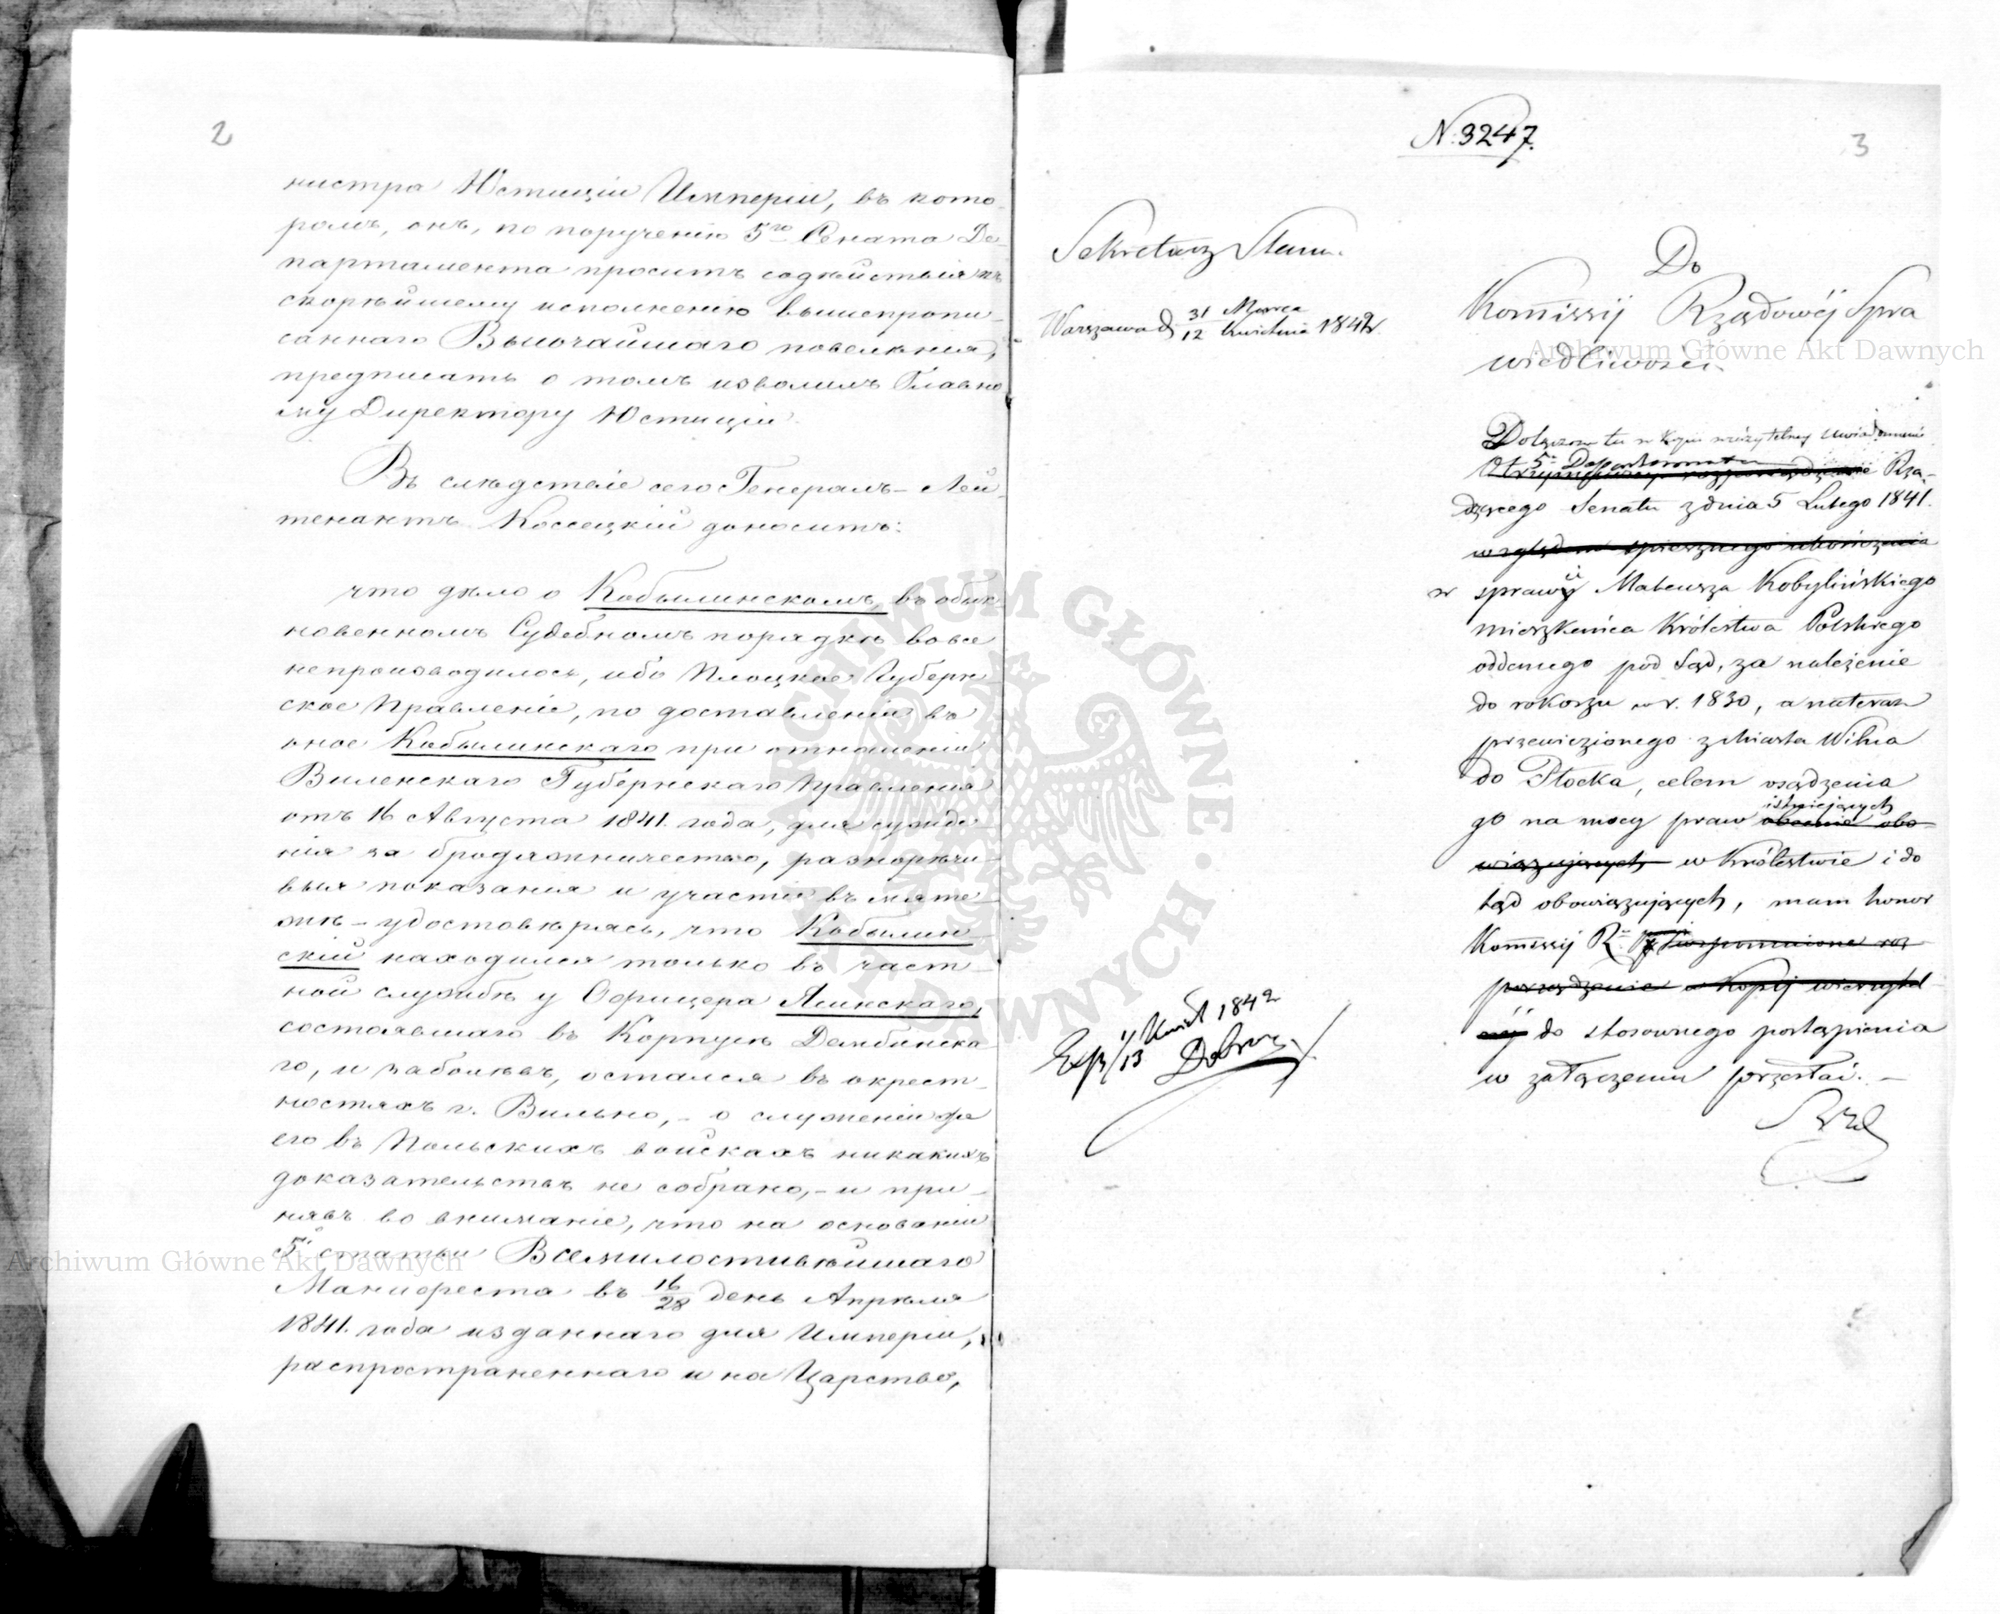 2
нистра Юстиціи Имперіи, въ кото-
ромъ, онъ, по порученію 5го Сената Де-
партамента проситъ содѣйствія къ
скорѣйшему исполненію вышепропи-
саннаго Высочайшаго повелѣнія,
предписать о томъ изволилъ Главно
му Директору Юстиціи.
Въ слѣдствіе сего Генералъ-Лей-
тенантъ Коссецкій доноситъ:
что дѣло о Кобылинскомъ, въ обык-
новенномъ Судебномъ порядкѣ вовсе
непроизводилось, ибо Плоцкое Губерн
ское Правленіе, по доставленіи въ
оное Кобылинскаго при отношеніи
Виленскаго Губернскаго Правленія
отъ 16 Августа 1841. года, для сужде-
нія за бродяжничество, разнорѣчи-
выя показанія и участіе въ мяте-
жѣ - удостовѣрясь, что Кобылин
скій находился только въ част-
ной службѣ у Офицера Ясинскаго,
состоявшаго въ Корпусѣ Дембинска
го, и заболѣвъ, остался въ окрест-
ностяхъ г. Вильно, - о служеніи же
его въ Польскихъ войскахъ никакихъ
доказательствъ не собрано, - и при-
нявъ во вниманіе, что на основаніи
5й статьи Всемилостивѣйшаго
Манифеста въ 16/28 день Апрѣля
1841. года изданнаго для Имперіи,
распространеннаго и на Царство,
N. 3247.
3
Sekretarz Stanu.
Warszawa d 31 Marca / 12 Kwietnia 1842r.
Do
Komissyi Rządowéj Spra
wiedliwości.
Dołączone tu w kopii wierzytelnej uwiadomienie
5o Departamentu
Otrzymawszy rozporządzenie Rzą-
dzącego Senatu z dnia 5 Lutego 1841.
względem spiesznego ukończenia
w sprawie Mateusza Kobylińskiego
mieszkańca Królestwa Polskiego
oddanego pod Sąd, za należenie
do rokoszu w r. 1830, a nateraz
przewiezionego z Miasta Wilna
do Płocka, celem osądzenia
istniejących
go na mocy praw obecnie obo-
wiązujących w Królestwie i do
tąd obowiązujących, mam honor
Komissyi R. wspomnione roz-
porządzenie w Kopij wierzytel
nej do stosownego postąpienia
w załączeniu przesłać. -
Exp 1/13 Kwiet 1842
Archiwum Główne Akt Dawnych
Archiwum Główne Akt Dawnych
ARCHIWUM GŁÓWNE · AKT DAWNYCH ·